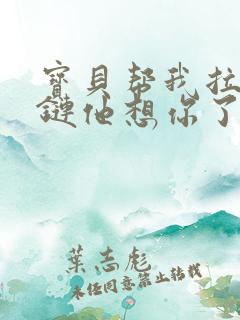 寶貝幫我拉
鏈他想你了
葉志彪
未经同意禁止转载